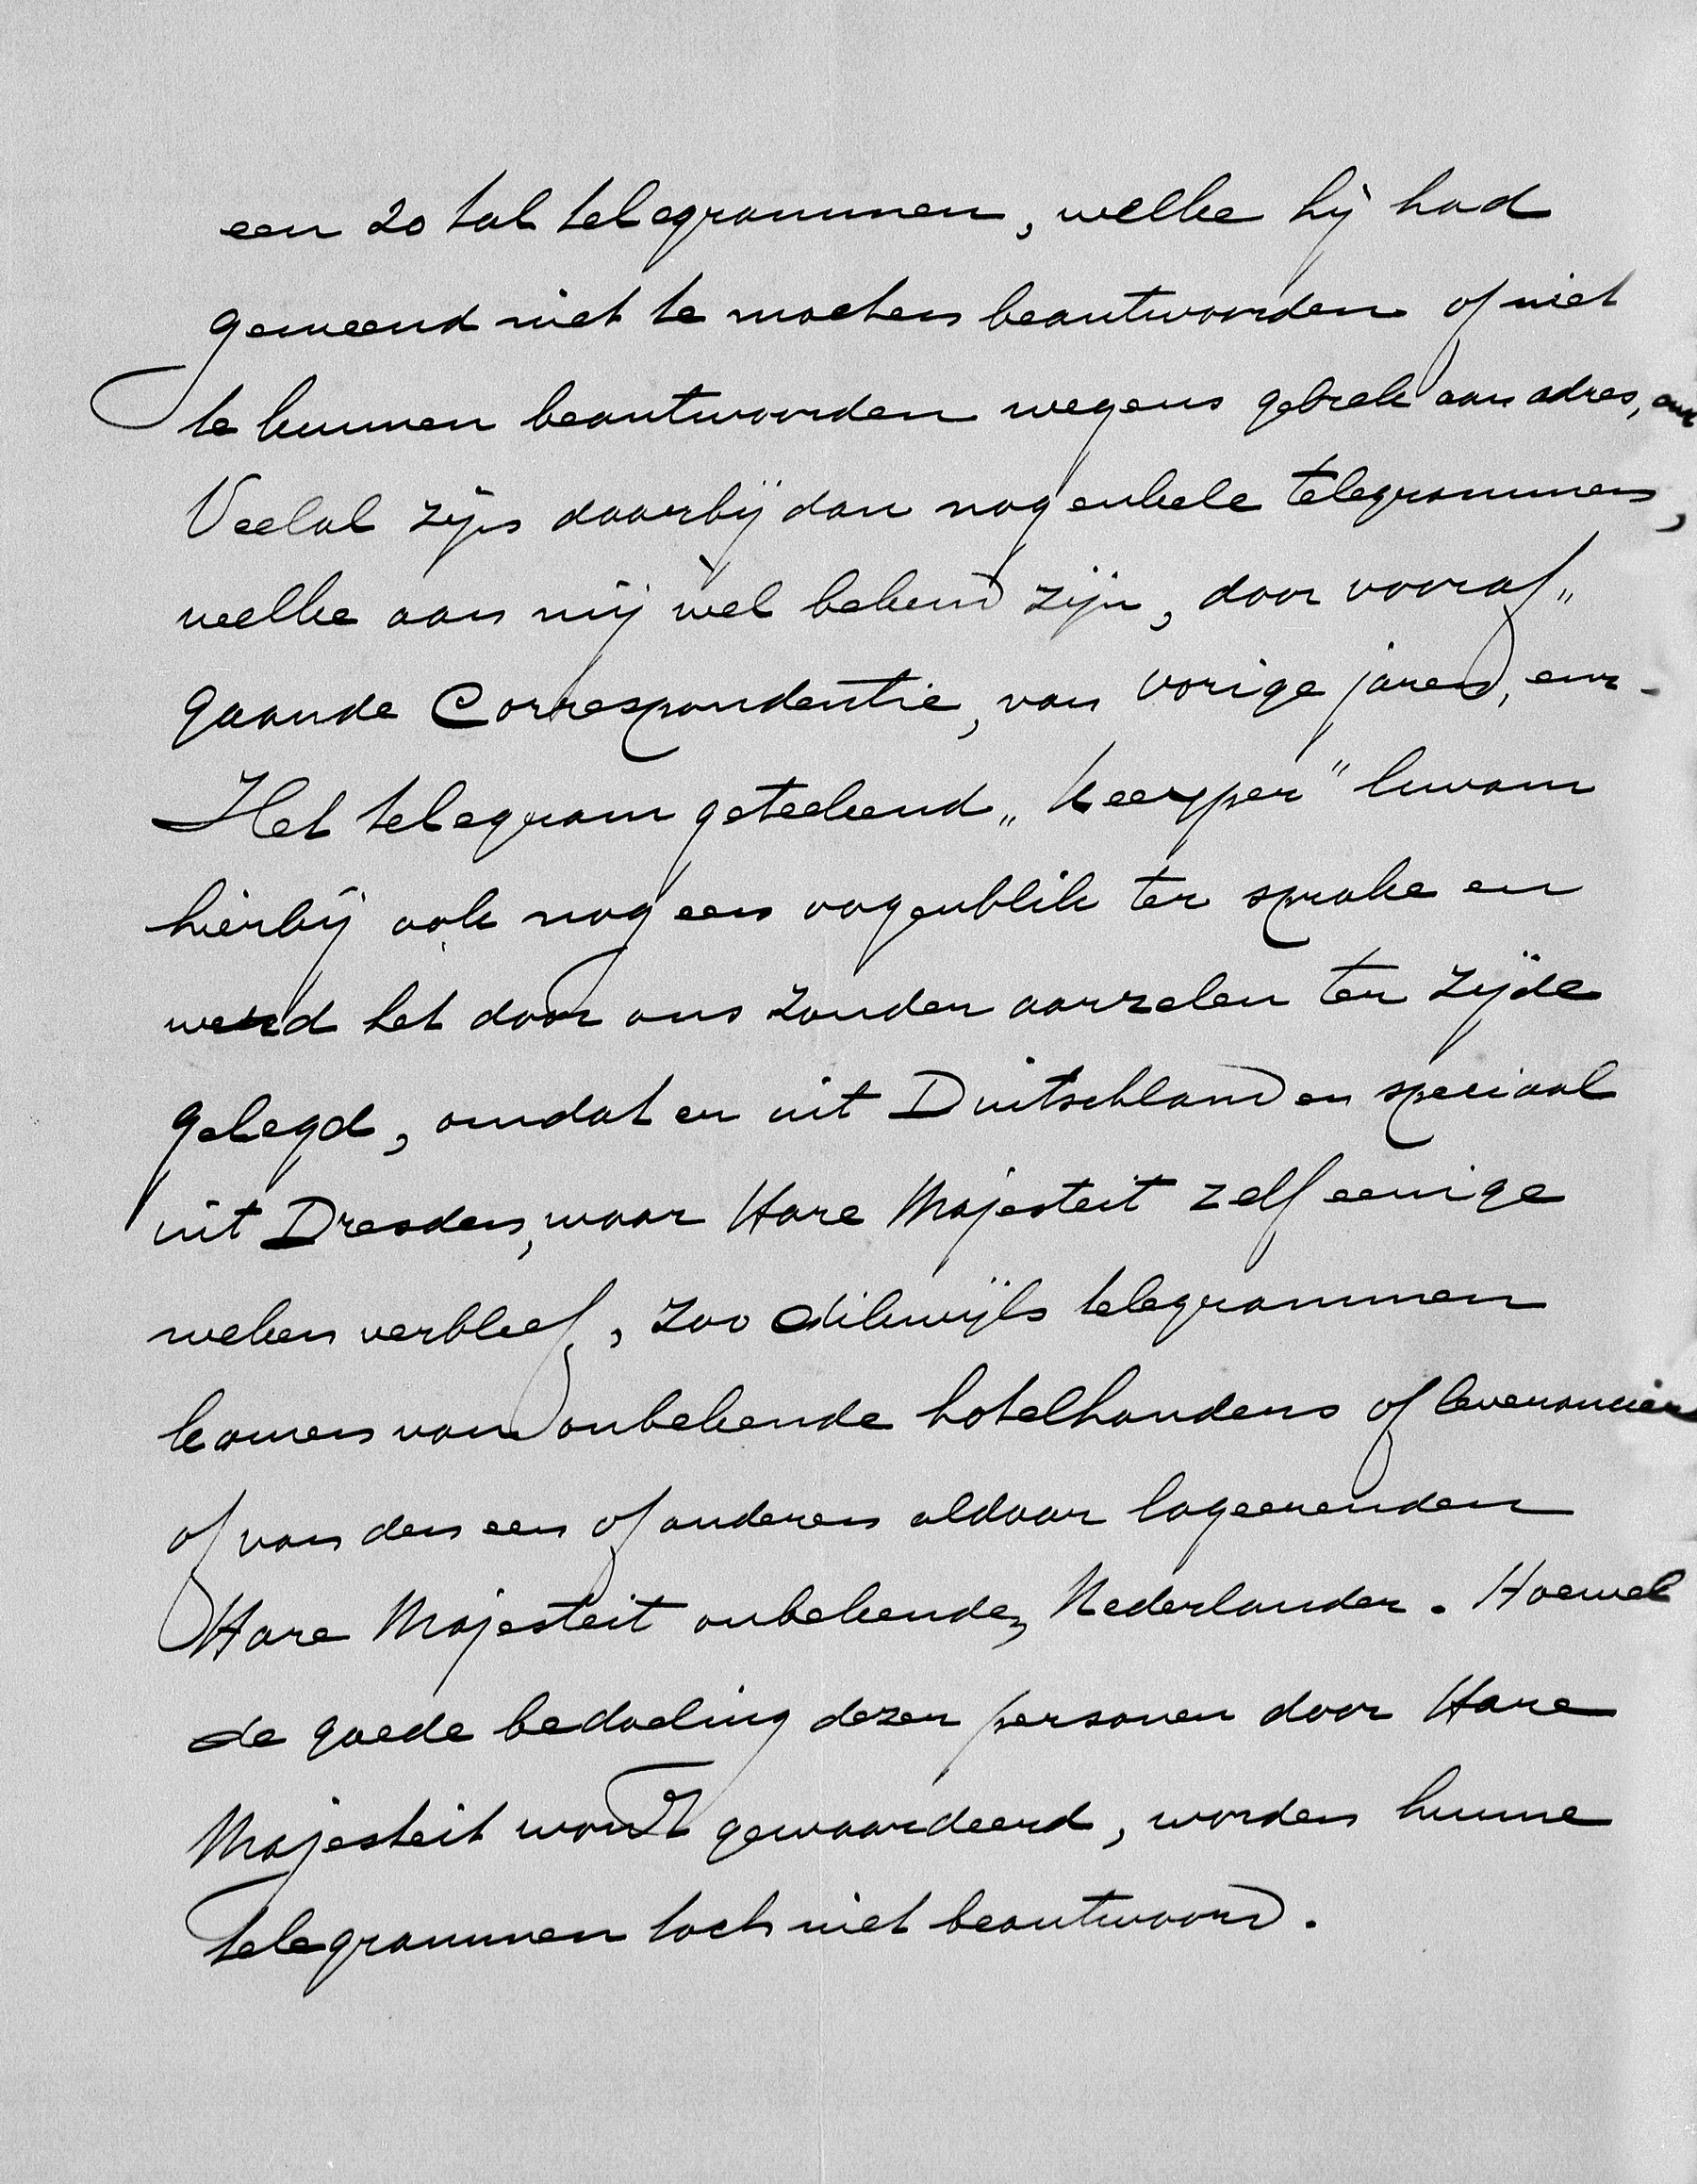 een 20 tal telegrammen, welke hij had
gemeend niet te moeten beantwoorden of niet
te kunnen beantwoorden wegens gebrek aan adres, enz
Veelal zijn daarbij dan nog enkele telegrammen,
welke aan mij wel bekend zijn, door vooraf„
gaande Correspondentie, van vorige jaren, enz.
Het telegram geteekend „Keeyper" kwam
hierbij ook nog een oogenblik ter sprake en
werd het door ons zonder aarzelen ter zijde
gelegd, omdat er uit Duitschland en speciaal
uit Dresden, waar Hare Majesteit zelf eenige
weken verbleef, zoo dikwijls telegrammen
komen van onbekende hotelhouders of leveranciers
of van den een of anderen aldaar logeerenden
Hare Majesteit onbekenden Nederlander. Hoewel
de goede bedoeling dezer personen door Hare
Majesteit wordt gewaardeerd, worden hunne
telegrammen toch niet beantwoord.